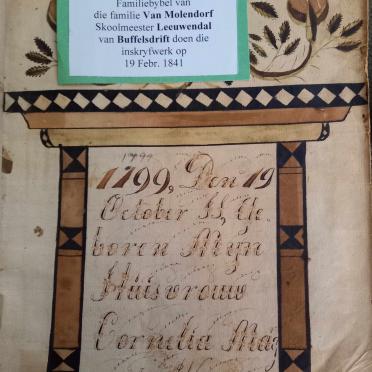 Familiebybel van
die familie Van Molendorf
Skoolmeester Leeuwendal
van Buffelsdrift doen die
inskryfwerk op
19 Febr. 1841
1799
1799, Den 19
October IS, Ge-
boren Myn
Huisvrouw
Cornelia Mag